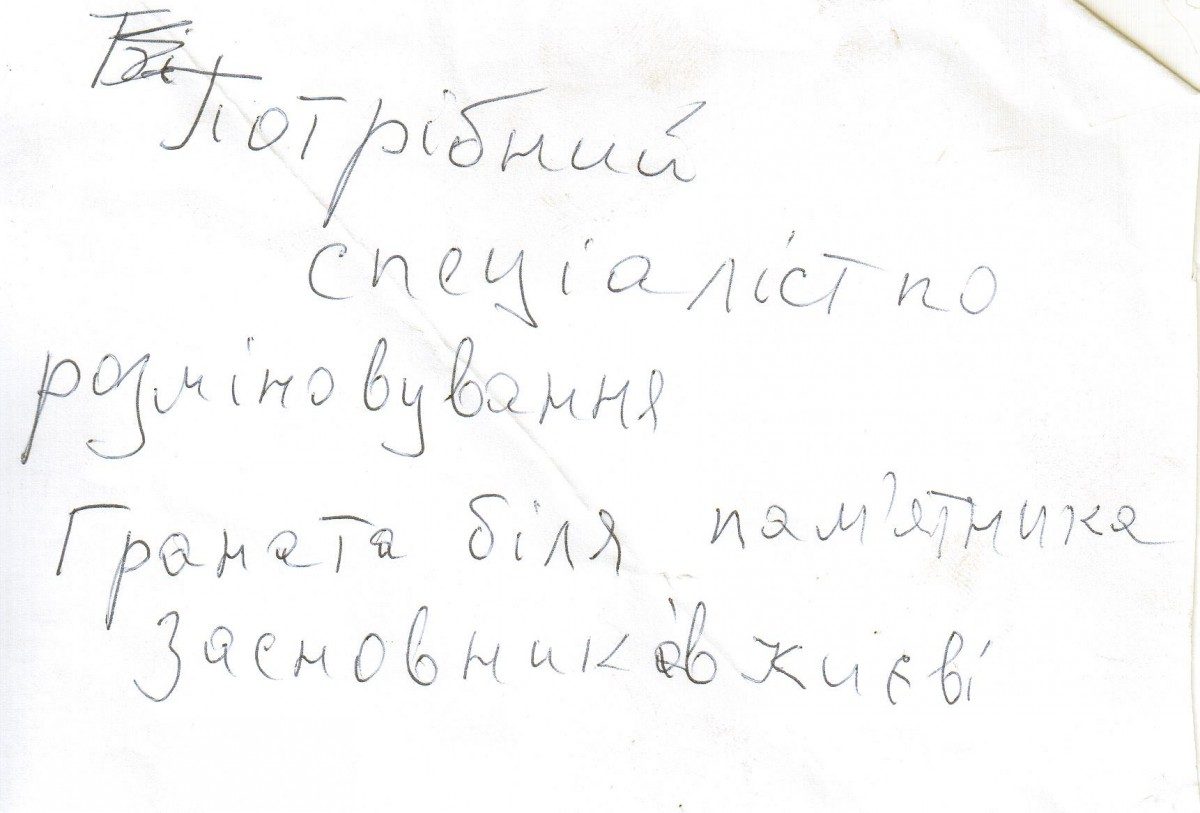 Потрібний
спеціаліст по
розміновування
Граната біля пам'ятника
Засновників Києві